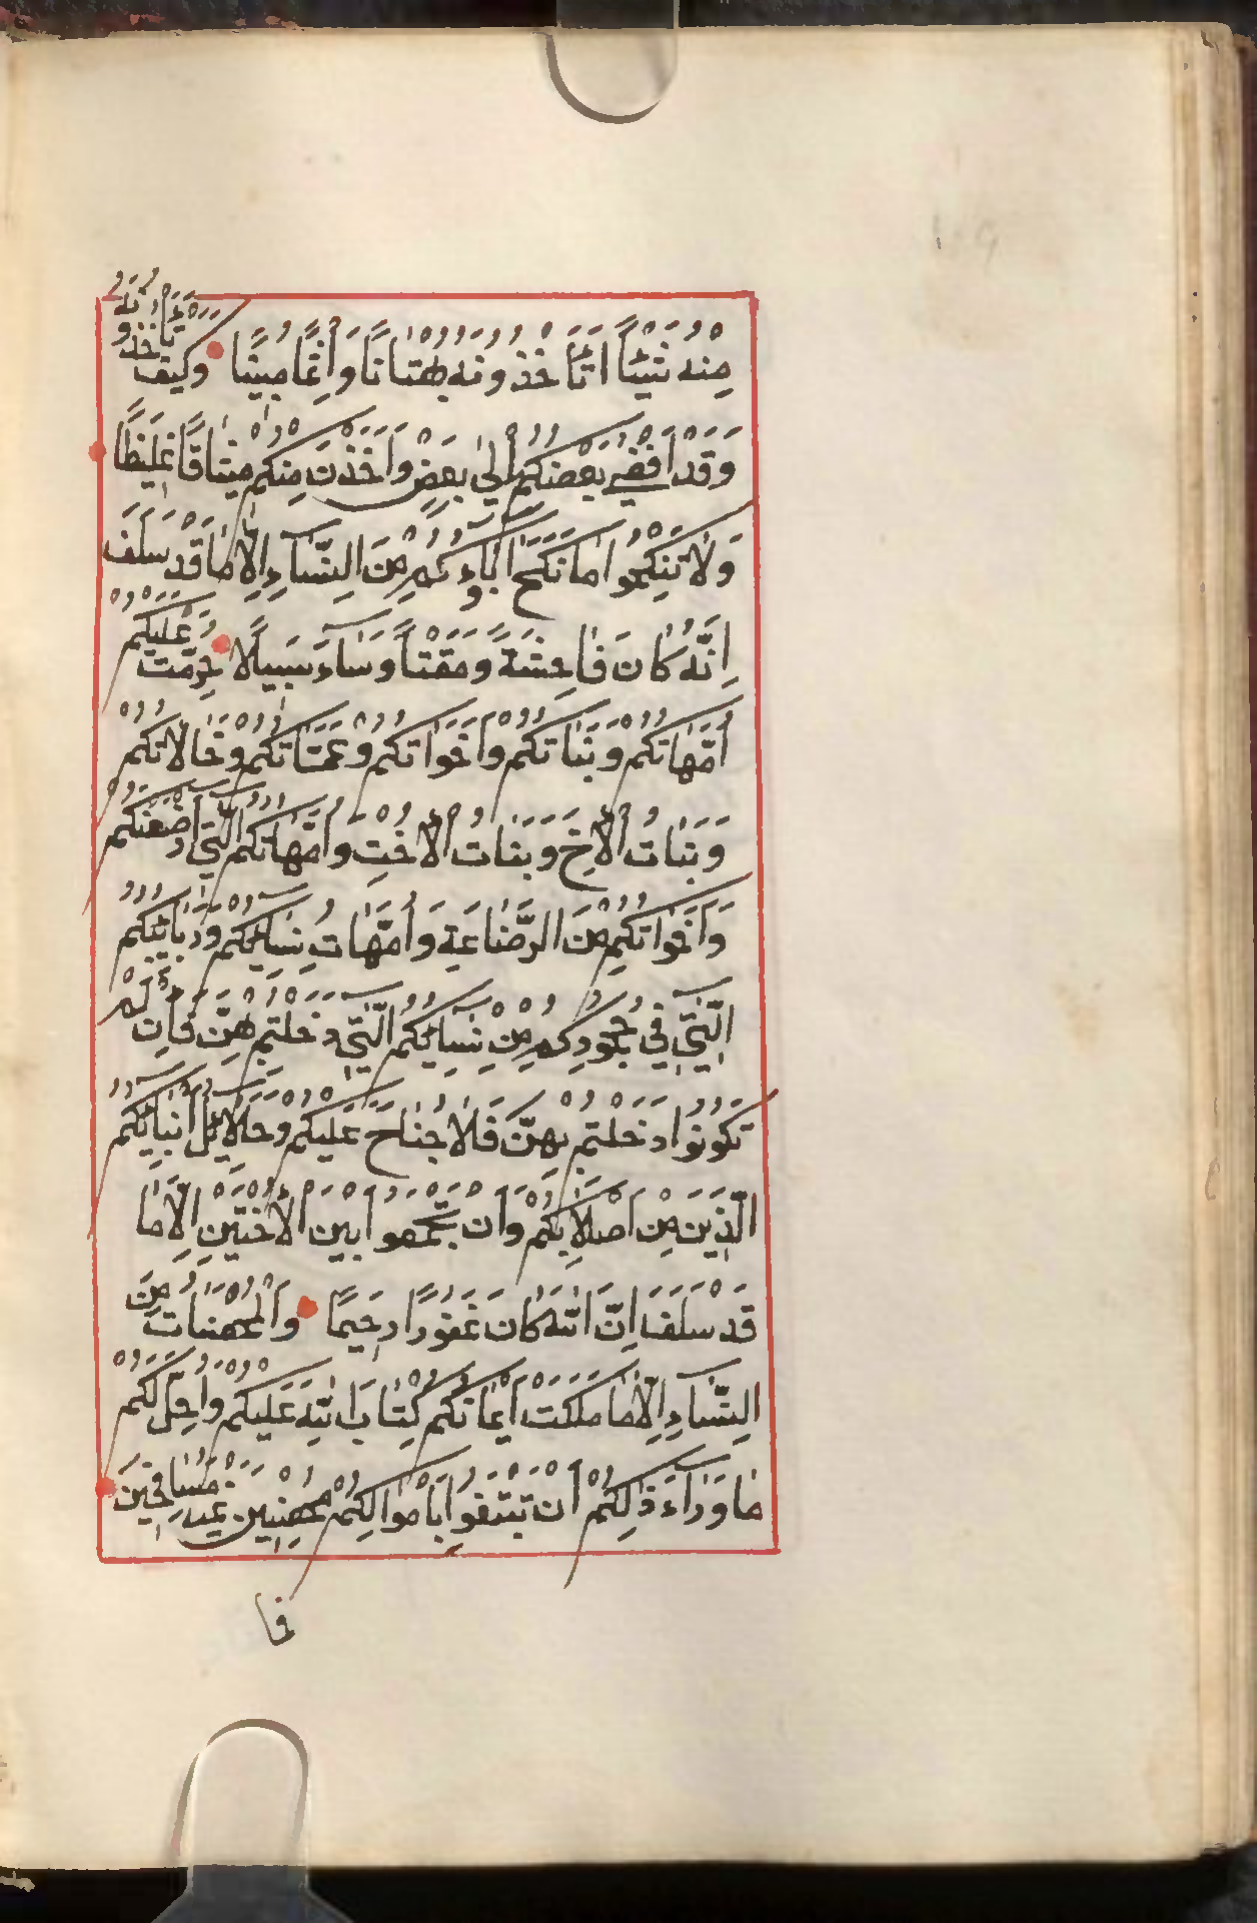 مِنْهُ شَيْئًا اَتَاْخُذُونَهُ بُهْتَانًا وَاِثْمًا مُبِينًا وَكَيْفَ تَاْخُذُونَهُ
وَقَدْ اَفْضٰى بَعْضُكُمْ اِلٰى بَعْضٍ وَاَخَذْنَ مِنْكُمْ مِيثَاقًا غَلِيظًا
وَلَا تَنْكِحُوا مَا نَكَحَ اٰبَاؤُكُمْ مِنَ النِّسَاءِ اِلَّا مَا قَدْ سَلَفَ
اِنَّهُ كَانَ فَاحِشَةً وَمَقْتًا وَسَاءَ سَبِيلًا حُرِّمَتْ عَلَيْكُمْ
اُمَّهَاتُكُمْ وَبَنَاتُكُمْ وَاَخَوَاتُكُمْ وَعَمَّاتُكُمْ وَخَالَاتُكُمْ
وَبَنَاتُ الْاَخِ وَبَنَاتُ الْاُخْتِ وَاُمَّهَاتُكُمُ الّٰتِي اَرْضَعْنَكُمْ
وَاَخَوَاتُكُمْ مِنَ الرَّضَاعَةِ وَاُمَّهَاتُ نِسَائِكُمْ وَرَبَائِبُكُمُ
الّٰتِي فِي حُجُورِكُمْ مِنْ نِسَائِكُمُ الّٰتِي دَخَلْتُمْ بِهِنَّ فَاِنْ لَمْ
تَكُونُوا دَخَلْتُمْ بِهِنَّ فَلَا جُنَاحَ عَلَيْكُمْ وَحَلَائِلُ اَبْنَائِكُمُ
الَّذِينَ مِنْ اَصْلَابِكُمْ وَاَنْ تَجْمَعُوا بَيْنَ الْاُخْتَيْنِ اِلَّا مَا
قَدْ سَلَفَ اِنَّ اللّٰهَ كَانَ غَفُورًا رَحِيمًا وَالْمُحْصَنَاتُ مِنَ
النِّسَاءِ اِلَّا مَا مَلَكَتْ اَيْمَانُكُمْ كِتَابَ اللّٰهِ عَلَيْكُمْ وَاُحِلَّ لَكُمْ
مَا وَرَاءَ ذٰلِكُمْ اَنْ تَبْتَغُوا بِاَمْوَالِكُمْ مُحْصِنِينَ غَيْرَ مُسَافِحِينَ
فما